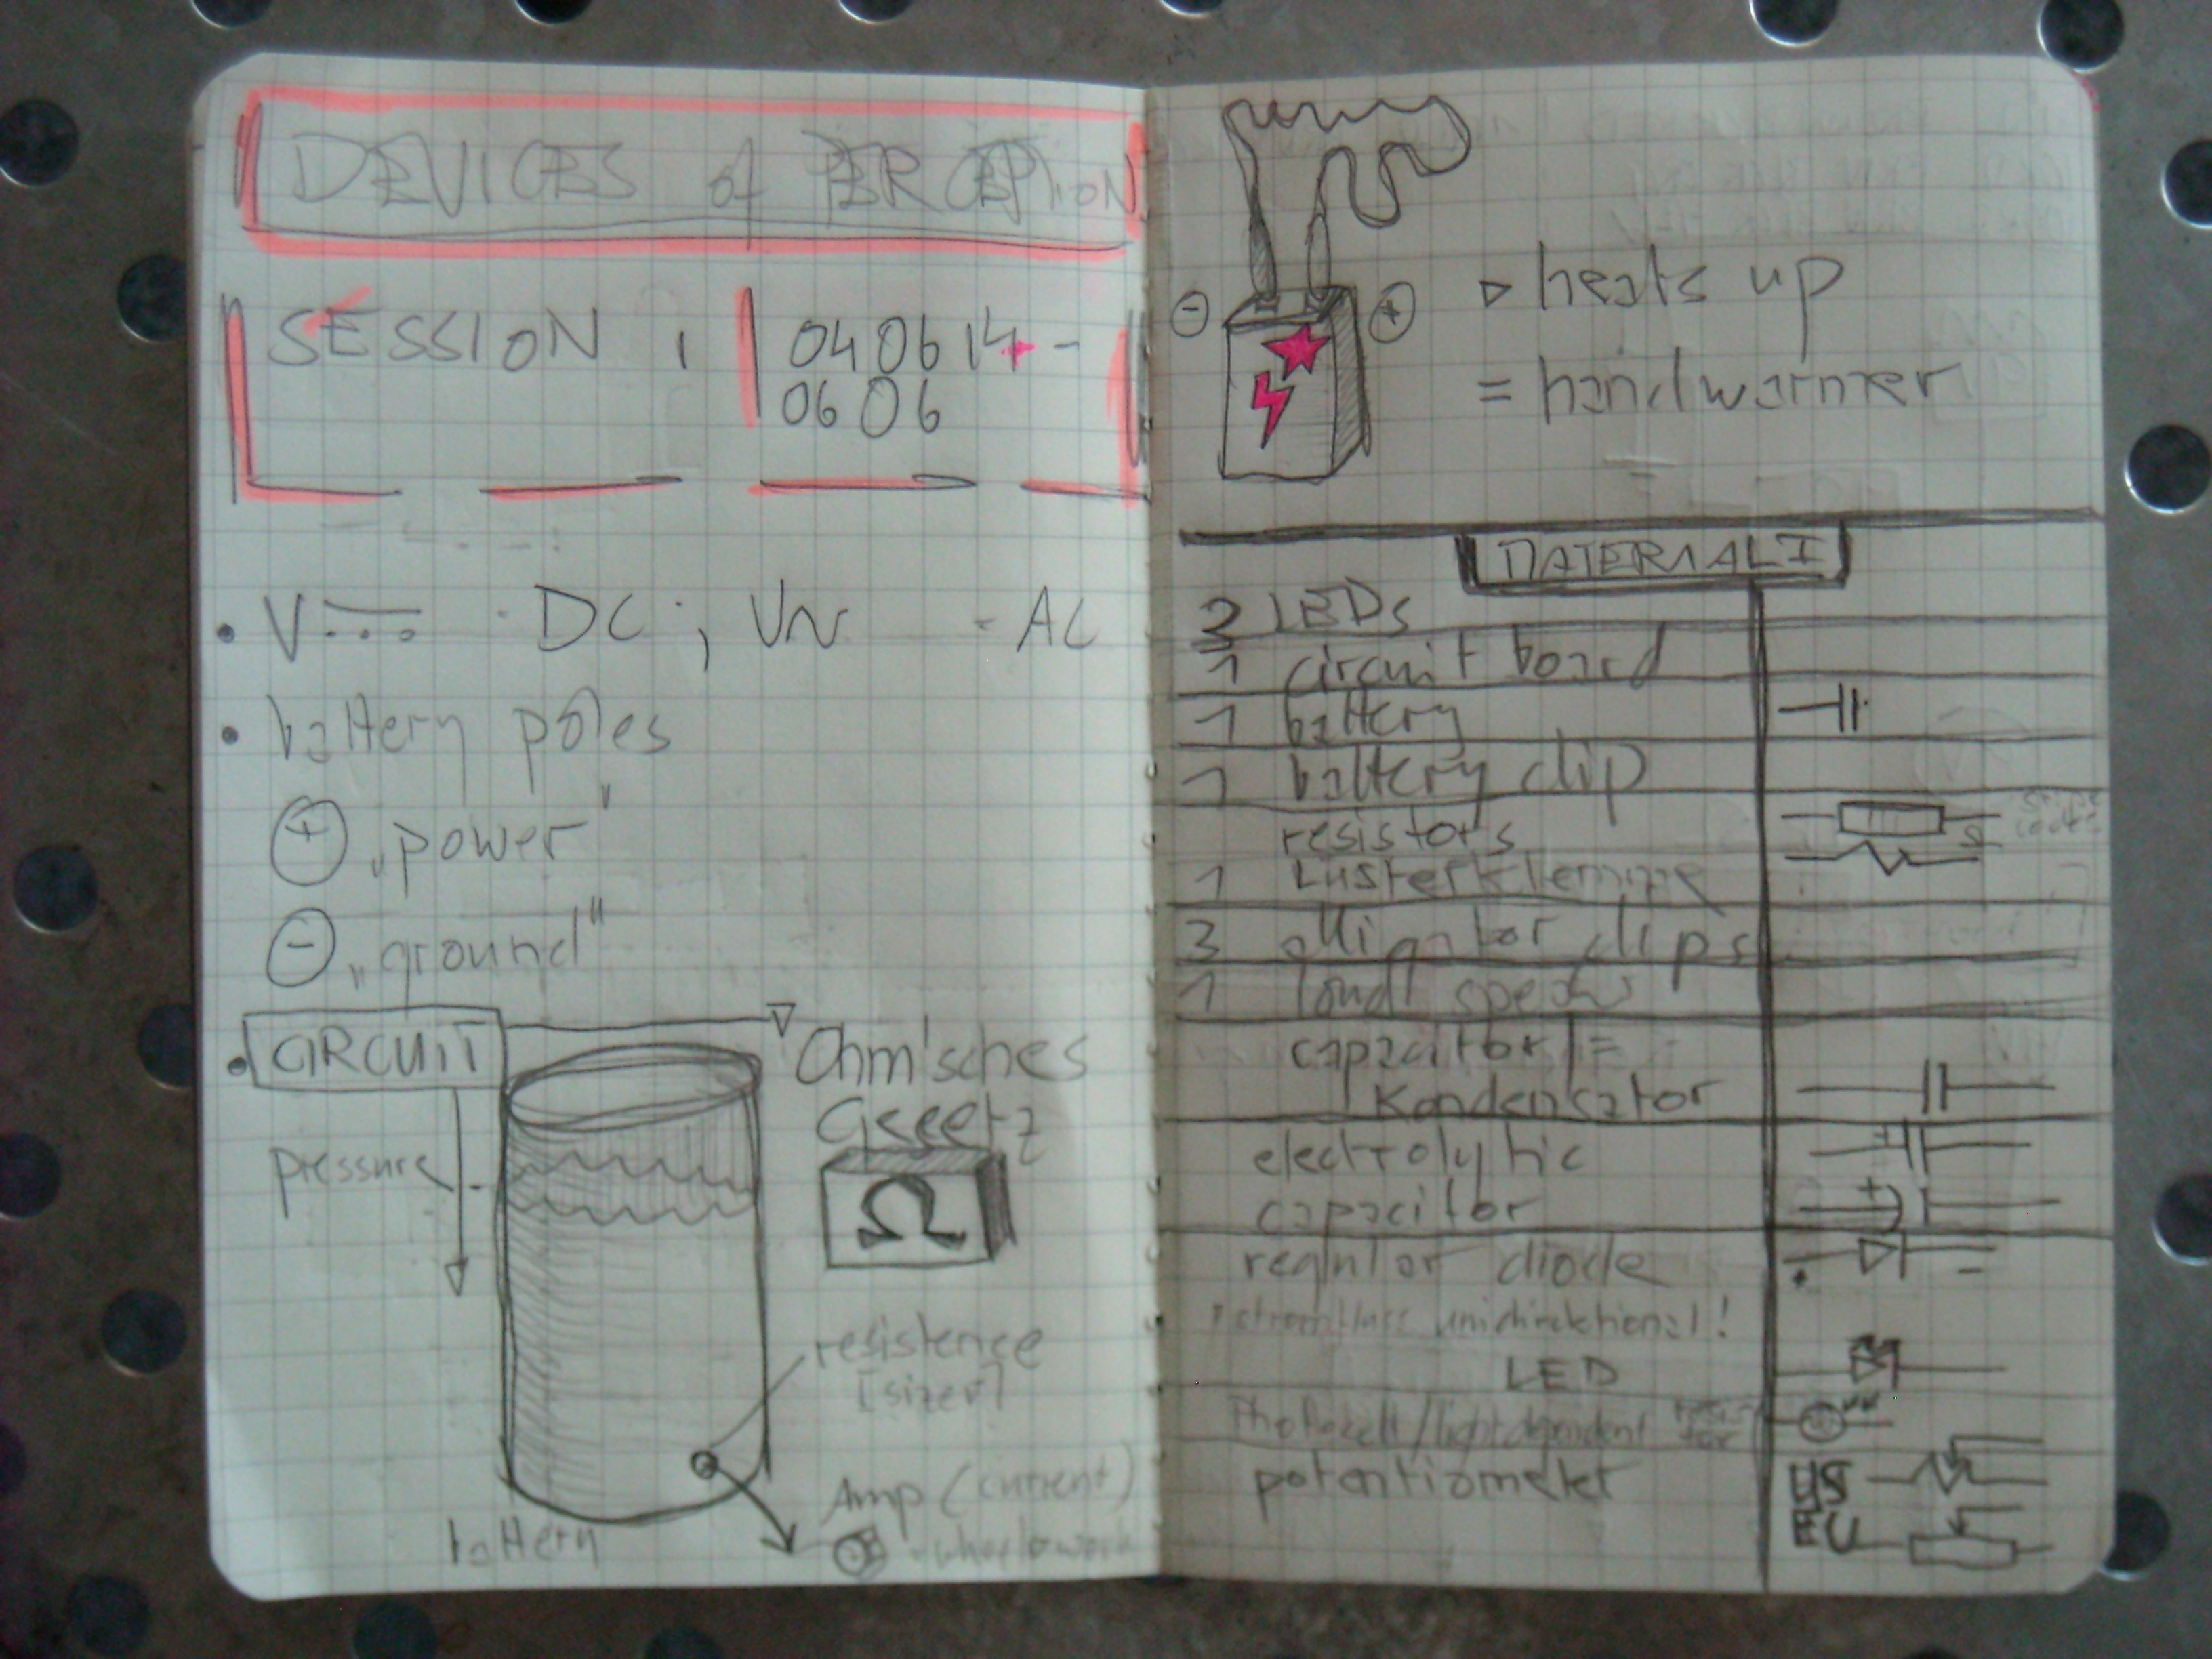 DEVICES of PERCEPTION
SESSION 1 040614 -
0606
• V DC ; V~ - AC
• battery poles
+ „power"
- „ground"
• CIRCUIT
pressure
battery
Ohm'sches
Gseetz
Ω
resistence
[sizer]
Amp (current)
- +
▷ heats up
= handwarmer
MATERIAL I
LEDs
1 circuit board
1 battery
1 battery clip
resistors
1 Lusterklemme
3 alligator clips
1 loud
capacitor =
Kondensator
electrolytic
capacitor
+
+
regular diode
unidirektional!
LED
Photocell/lightdependent resistor
potentiometer
US
EU